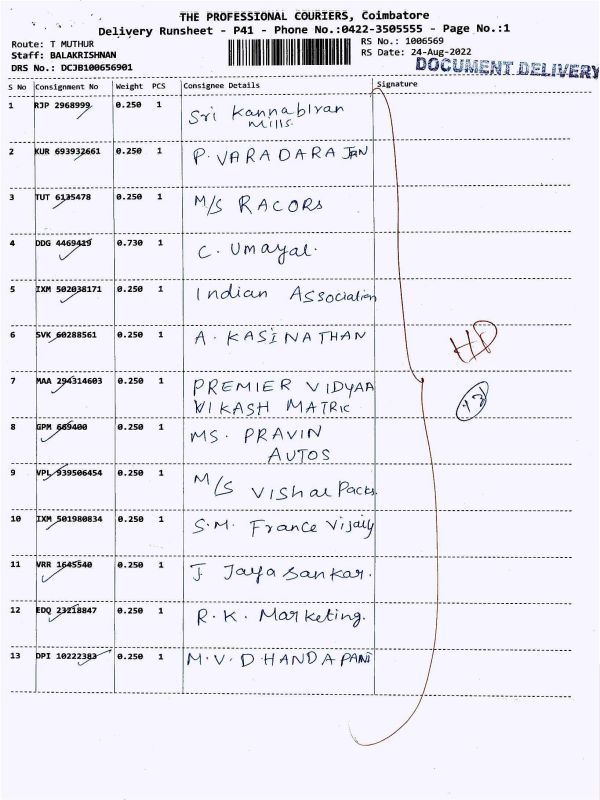 THE PROFESSIONAL COURIERS, Coimbatore
Delivery Runsheet - P41 - Phone No.:0422-3505555 - Page No.:1
Route: T MUTHUR
RS No.: 1006569
Staff: BALAKRISHNAN
RS Date: 24-Aug-2022
DRS No.: DCJB100656901
DOCUMENT DELIVERY
S No Consignment No Weight PCS Consignee Details Signature
1 RJP 2968999 0.250 1 Sri Kannabiran
Mills.
2 KUR 693932661 0.250 1 P. VARADARAJAN
3 TUT 6135478 0.250 1 M/S RACORS
4 DDG 4469419 0.730 1 C. Umayal.
5 IXM 502038171 0.250 1 Indian Association
6 SVK 60288561 0.250 1 A. KASINATHAN
7 MAA 294314603 0.250 1 PREMIER VIDYAA
VIKASH MATRIC
8 GPM 669400 0.250 1 MS. PRAVIN
AUTOS
9 VPL 939506454 0.250 1 M/S Vishal Packs.
10 IXM 501980834 0.250 1 S.M. France Vijaily
11 VRR 1645540 0.250 1 J Jaya Sankar.
12 EDQ 23218847 0.250 1 R. K. Marketing.
13 DPI 10222383 0.250 1 M. V. DHANDAPANI
13